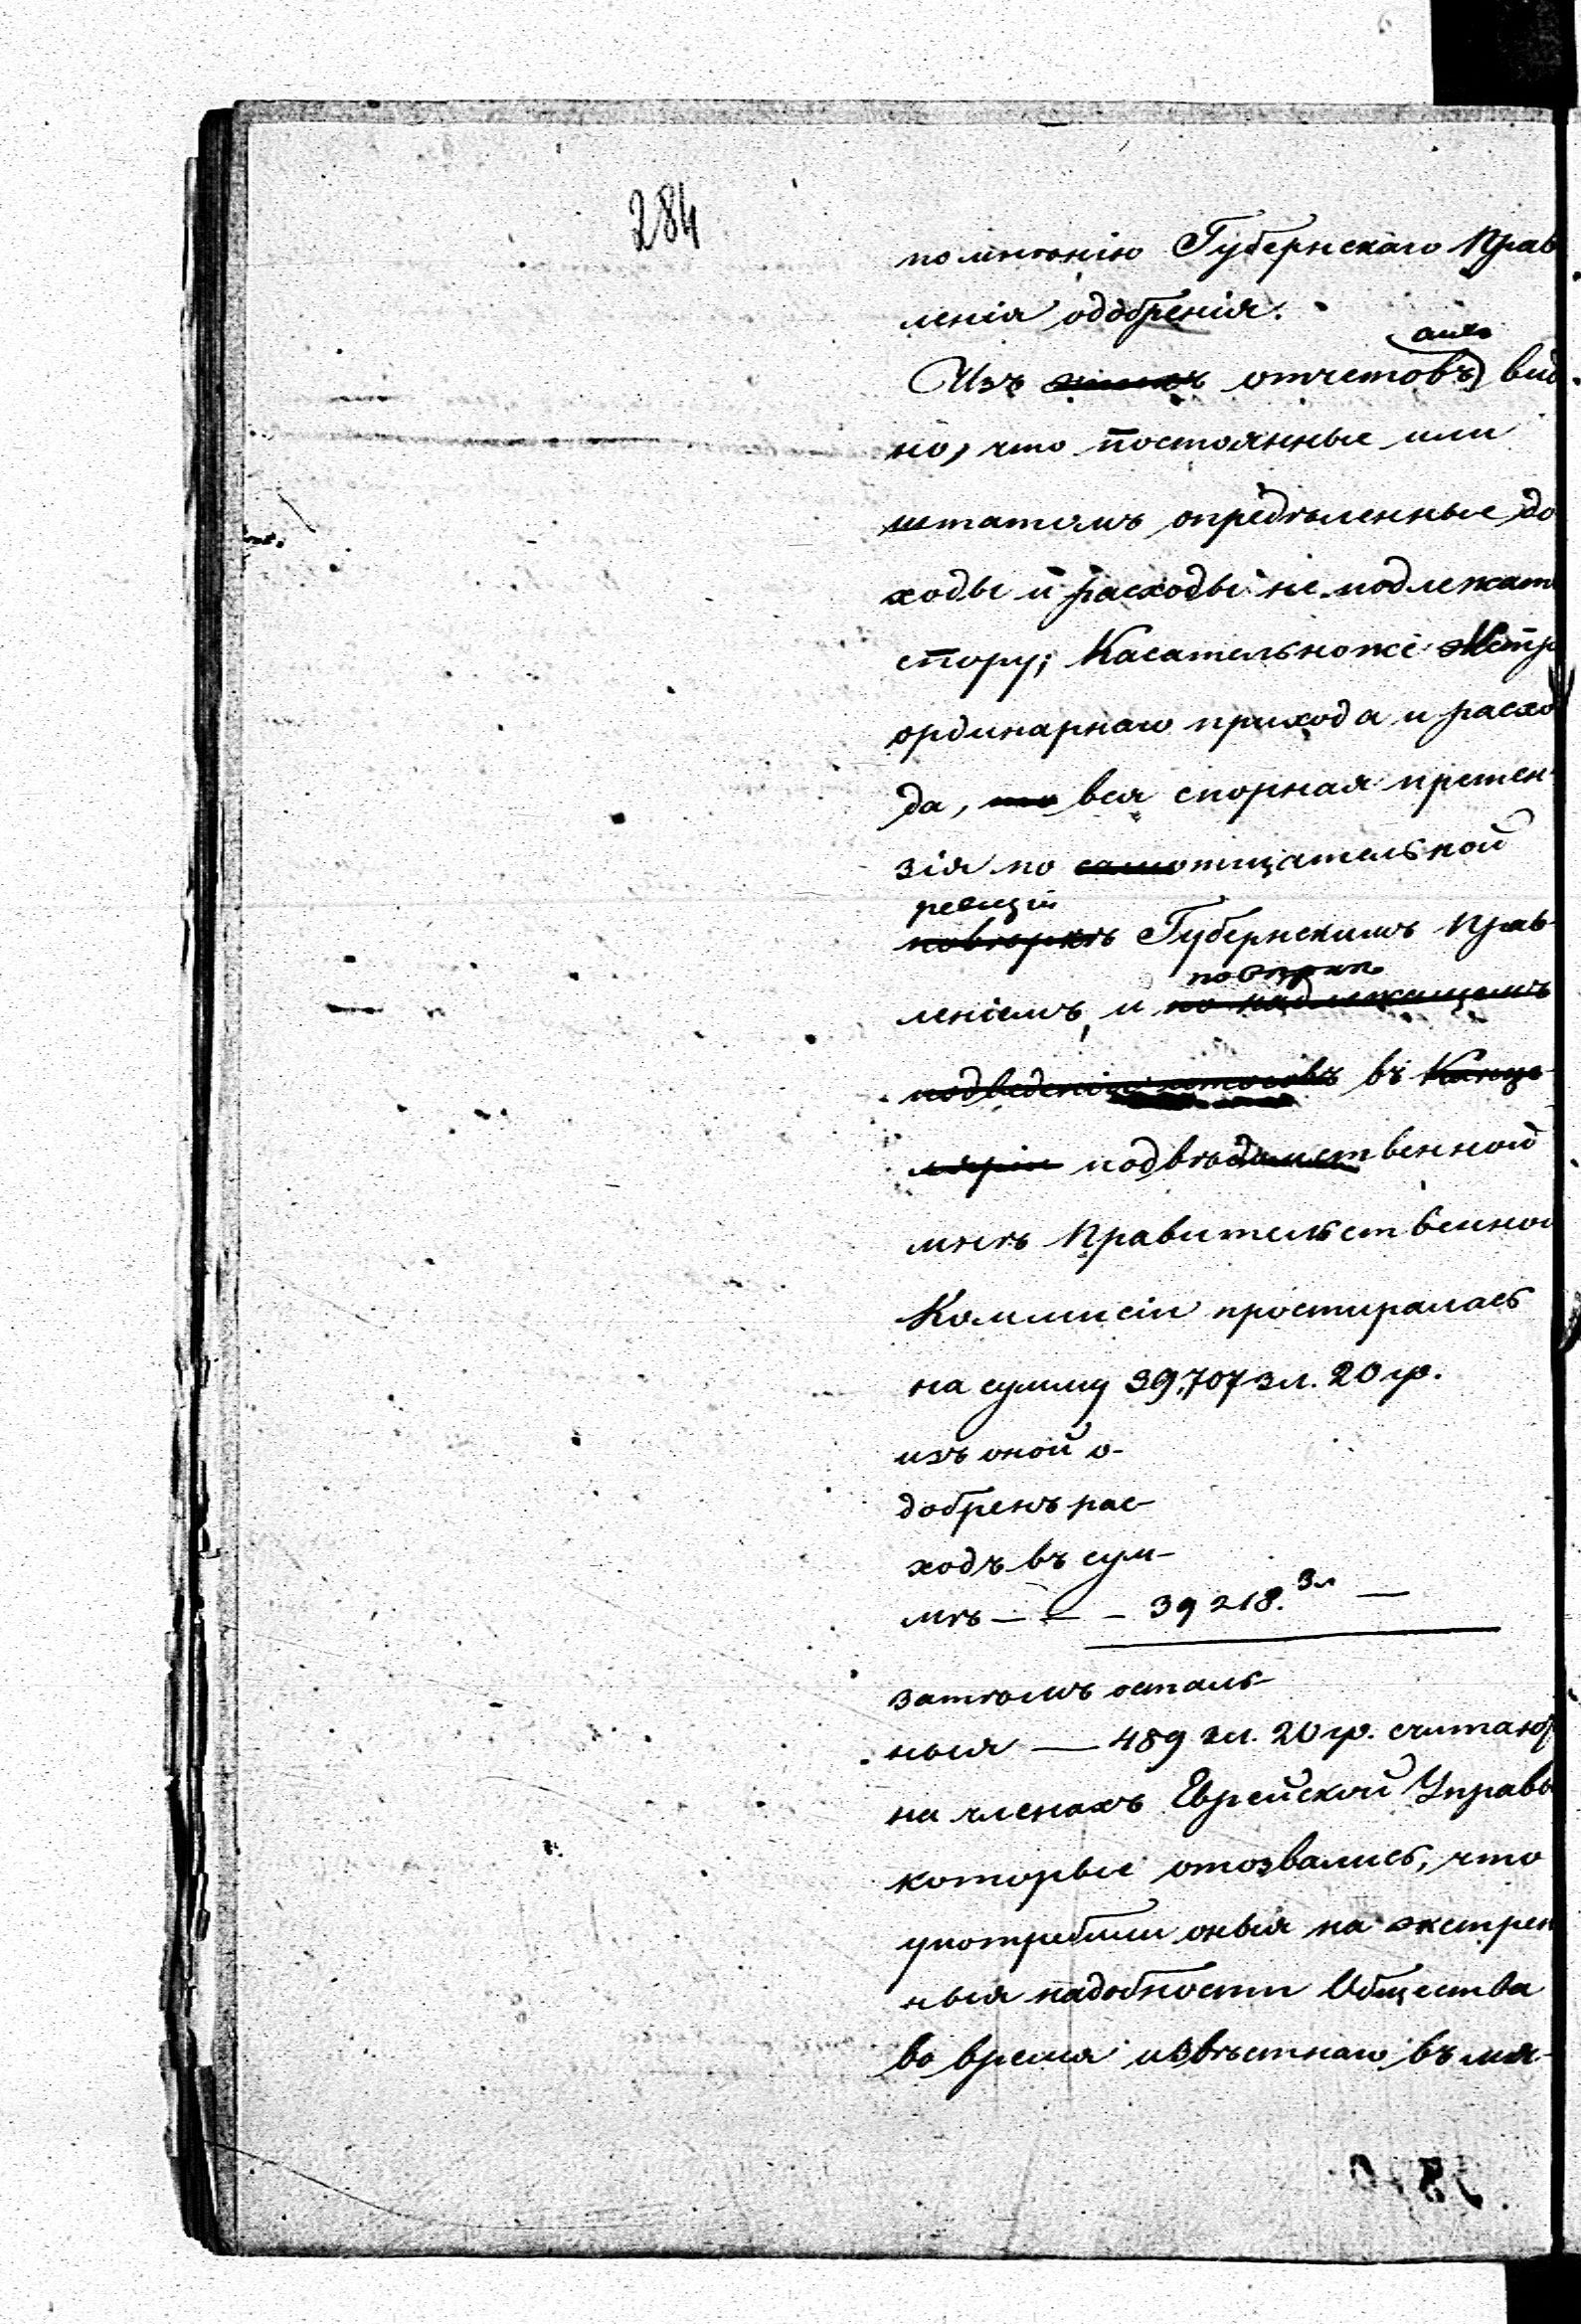 284
по мнѣнію Губернскаго Прав
ленія одобренія.
Изъ отчетовъ вид
но, что постоянные или
штатамъ опредѣленные до
ходы и расходы не подлежатъ
спору; Касательноже экстра
ординарнаго прихода и расхо
да, то вся спорная претен-
зія по самотщательной
ревизіи
повѣркѣ Губернскимъ Прав-
повѣркѣ
леніемъ, и по надлежащемъ
подведеніи итоговъ въ Канце
ляріи подвѣдомственной
мнѣ Правительственной
Коммисіи простиралась
на сумму 39,707 зл. 20 гр.
изъ оной о-
добренъ рас-
ходъ въ сум-
мѣ — — — 39 218. зл —
затѣмъ осталь-
ныя — 489 зл. 20 гр. считают
на членахъ Еврейской Управы
которые отозвались, что
употребили оныя на экстрен
ныя надобности Общества
во время извѣстнаго въ мя-